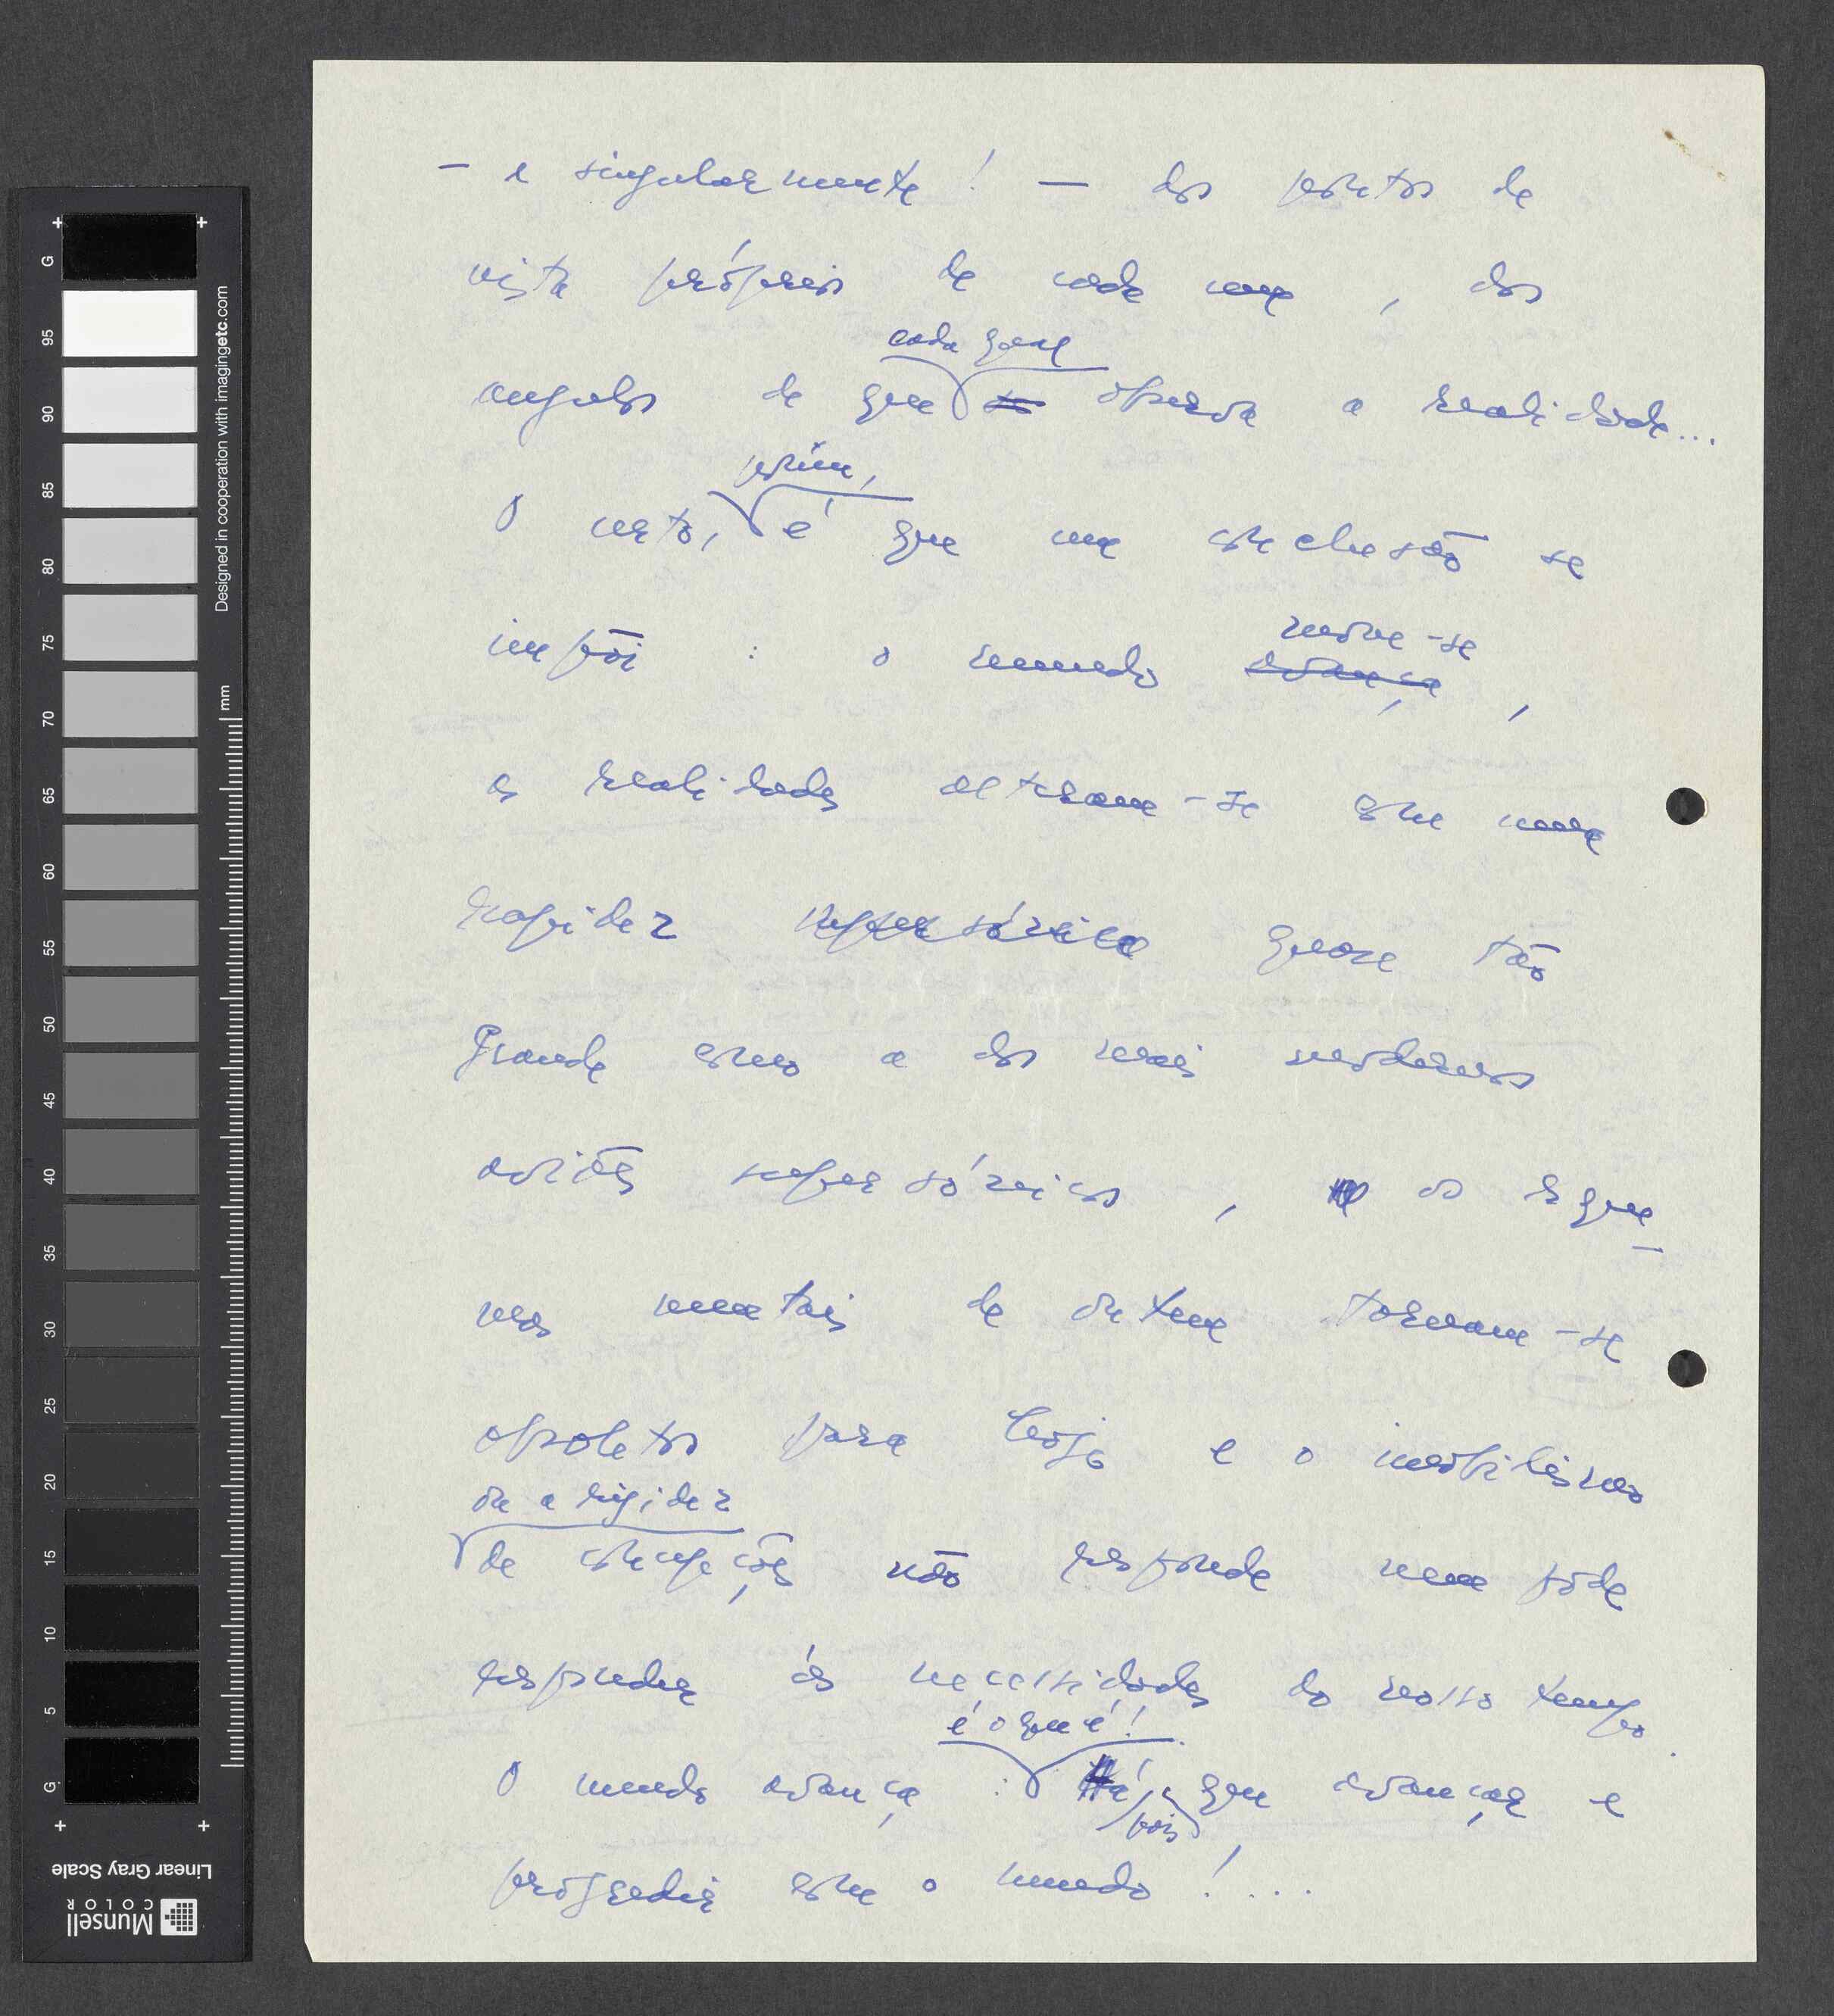 – e singularmente! – dos pontos de
vista próprios de cada um, dos
cada qual
angulos de que se observa a realidade...
porém,
O certo, é que uma conclusão se
impõi : o mundo avança,
move-se ,
as realidades alteram-se com uma
rapidez supersónica quase tão
grande como a dos mais modernos
aviões supersónicos, os esque-
mas mentais de ontem tornam-se
obsoletos para hoje e o imobilismo
ou a rigidez
de concepções não responde nem pode
responder ás necessidades do nosso tempo.
é o que é!
O mundo avança : Há que avançar e
pois,
progredir com o mundo!...
G 95 90 85 80 75 70 65 60 55 50 45 40 35 30 25 20 15 10 5 G
Designed in cooperation with imagingetc.com
mm
Linear Gray Scale
Munsell
COLOR